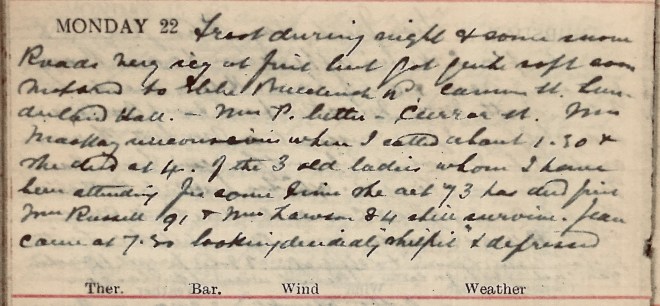 MONDAY 22 Frost during night & some snow
Roads very icy at first but got quite soft soon
Motored to Buccleuch Pl Cameron St. Sun-
derland Hall. - Mrs P. better - Curror St. Mrs
Mackay unconscious when I called about 1.30 &
she died at 4. Of the 3 old ladies whom I have
been attending for some time she aet 73 has died first
Mrs Russell 91 & Mrs Lawson 84 still survive. Jean
came at 7.30 looking decidedly "shilpit" & depressed
Ther. Bar. Wind Weather